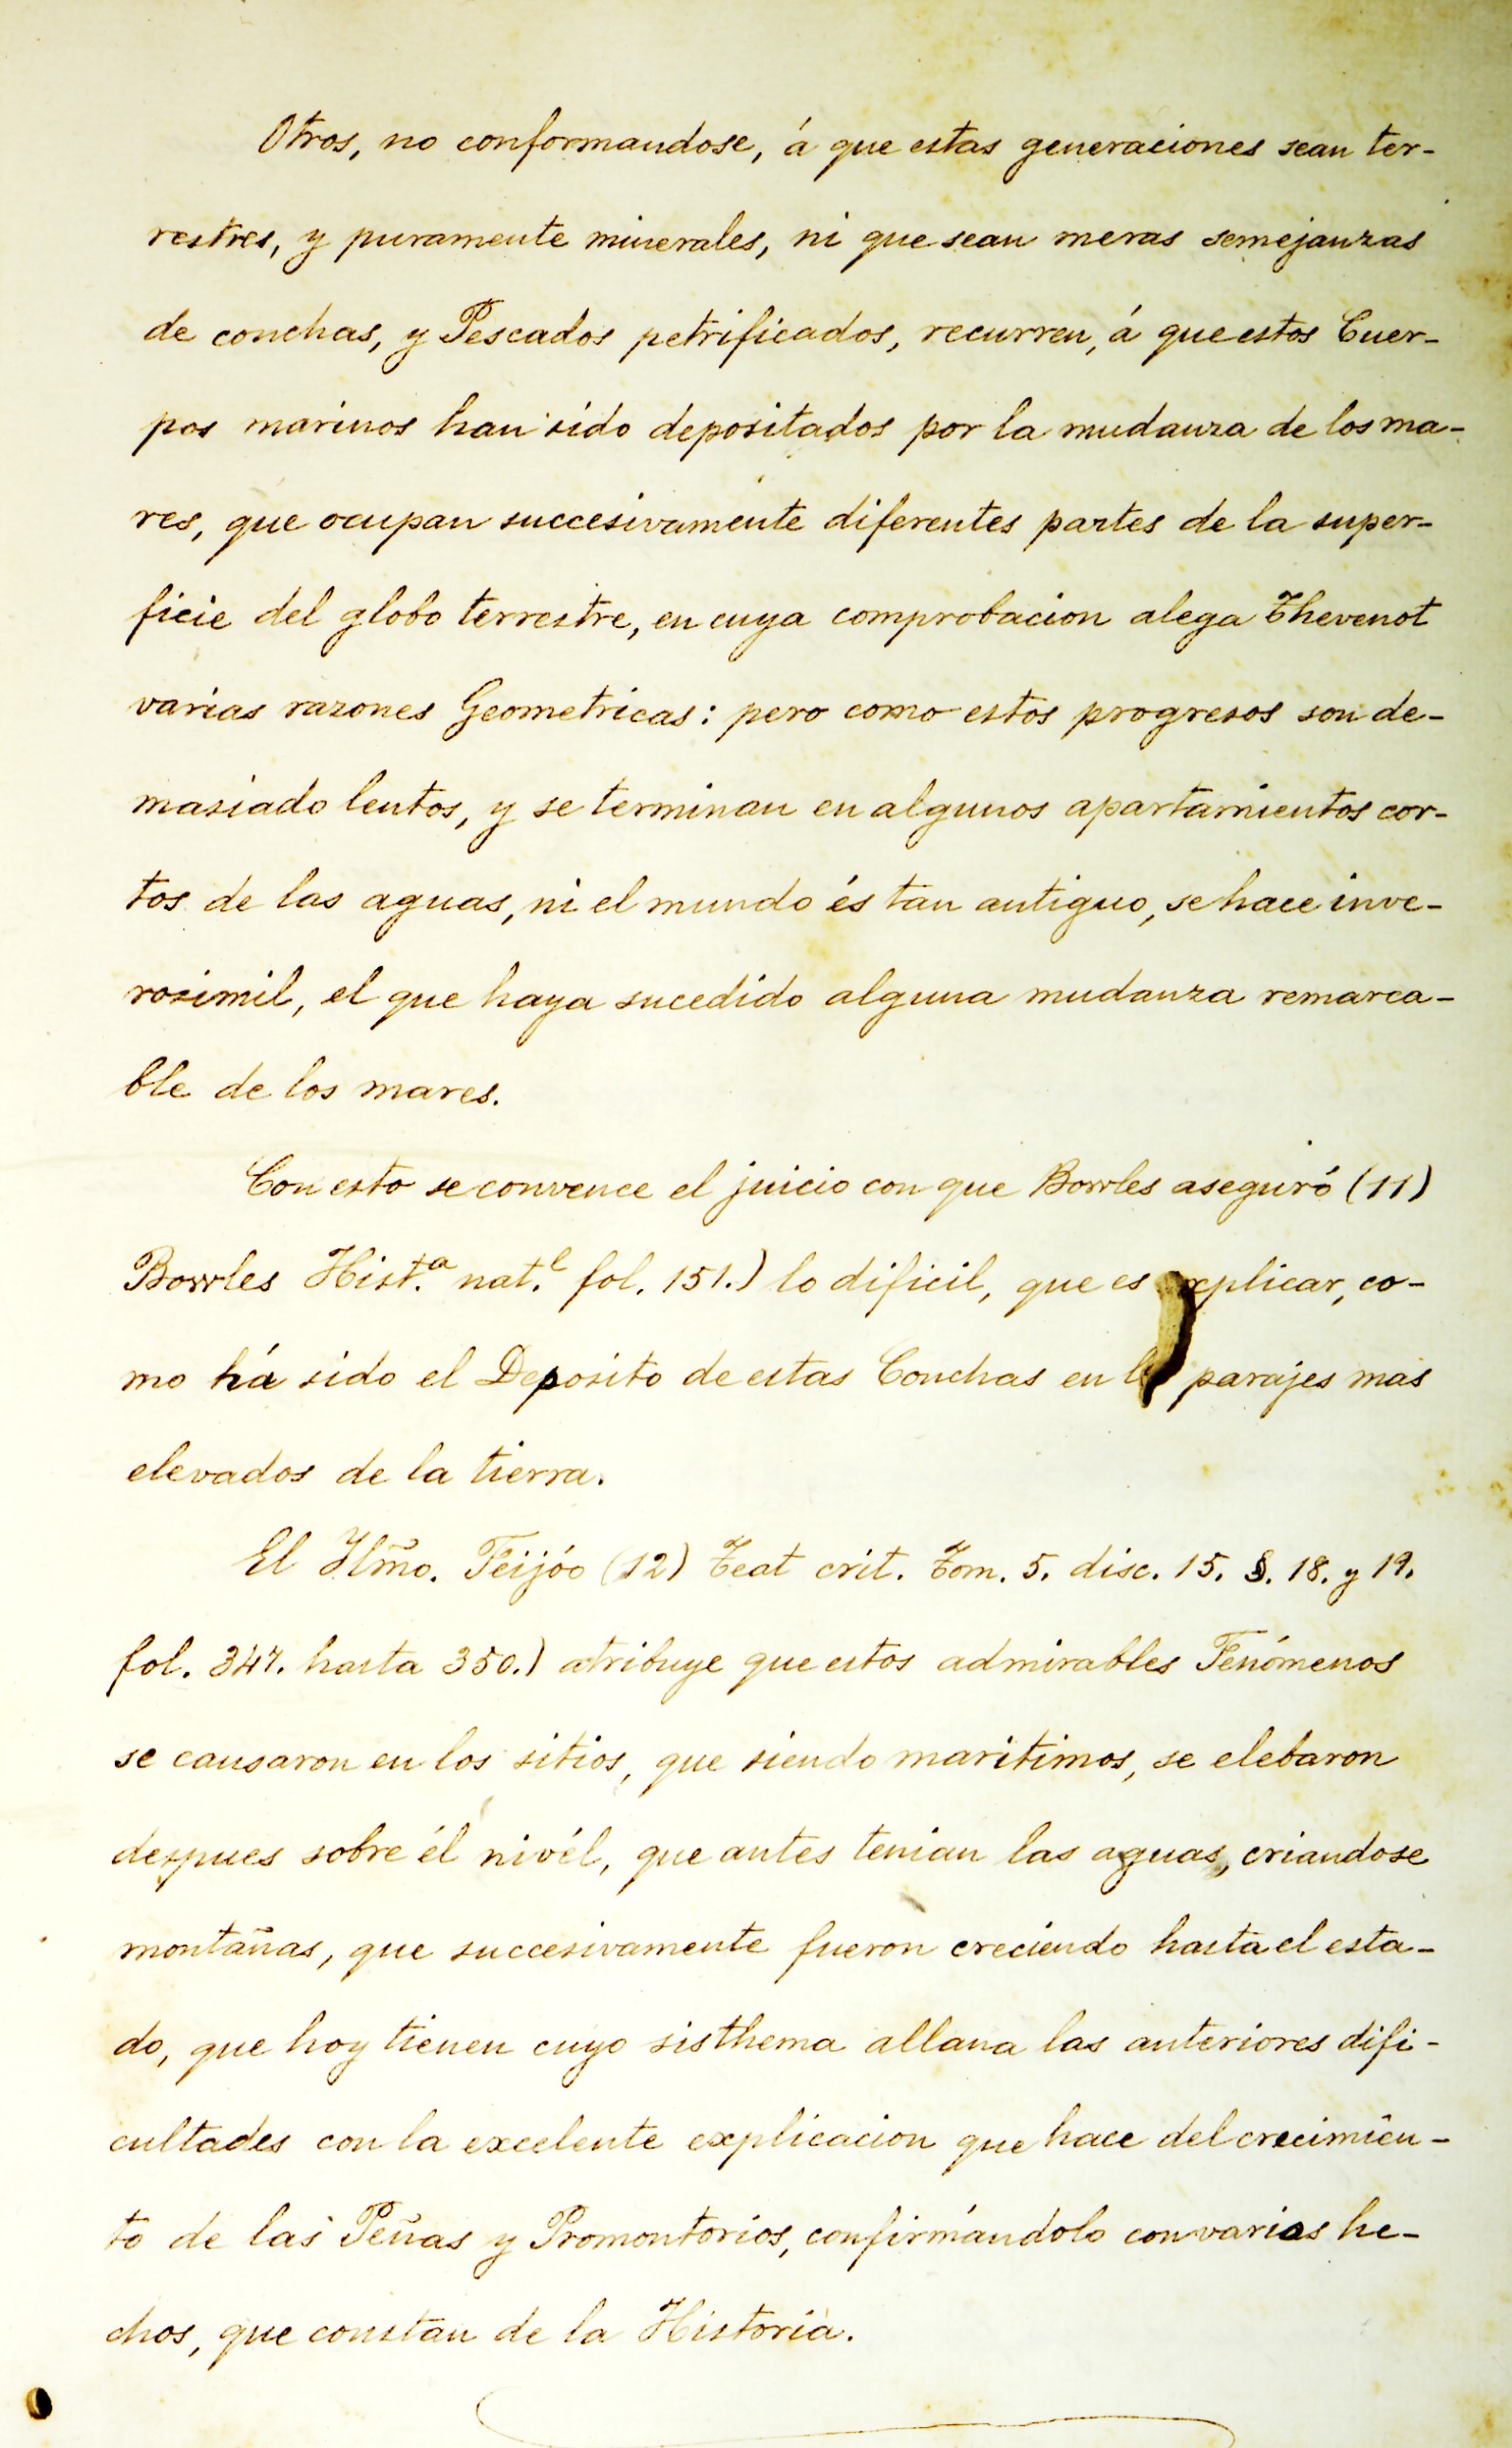 Otros, no conformandose, á que estas generaciones sean ter-
restres, y puramente minerales, ni que sean meras semejanzas
de conchas, y Pescados petrificados, recurren, á que estos Cuer-
pos marinos han sido depositados por la mudanza de los ma-
res, que ocupan succesivamente diferentes partes de la super-
ficie del globo terrestre, en cuya comprobacion alega Thevenot
varias razones Geometricas: pero como estos progresos son de-
masiado lentos, y se terminan en algunos apartamientos cor-
tos de las aguas, ni el mundo és tan antiguo, se hace inve-
rosimil, el que haya sucedido alguna mudanza remarca-
ble de los mares.
Con esto se convence el juicio con que Bowles aseguró (11)
Bowles Hist.ª nat.l fol. 151.) lo dificil, que es explicar, co-
mo há sido el Deposito de estas Conchas en parajes mas
elevados de la tierra.
El Ilm̃o. Feijóo (12) Teat crit. Tom. 5. disc. 15. §. 18. y 19.
fol. 347. hasta 350.) atribuye que estos admirables Fenómenos
se causaron en los sitios, que siendo maritimos, se elebaron
despues sobre él nivél, que antes tenian las aguas, criandose
montañas, que succesivamente fueron creciendo hasta el esta-
do, que hoy tienen cuyo sisthema allana las anteriores difi-
cultades con la excelente explicacion que hace del crecimien-
to de las Peñas y Promontorios, confirmándolo con varios he-
chos, que constan de la Historia.